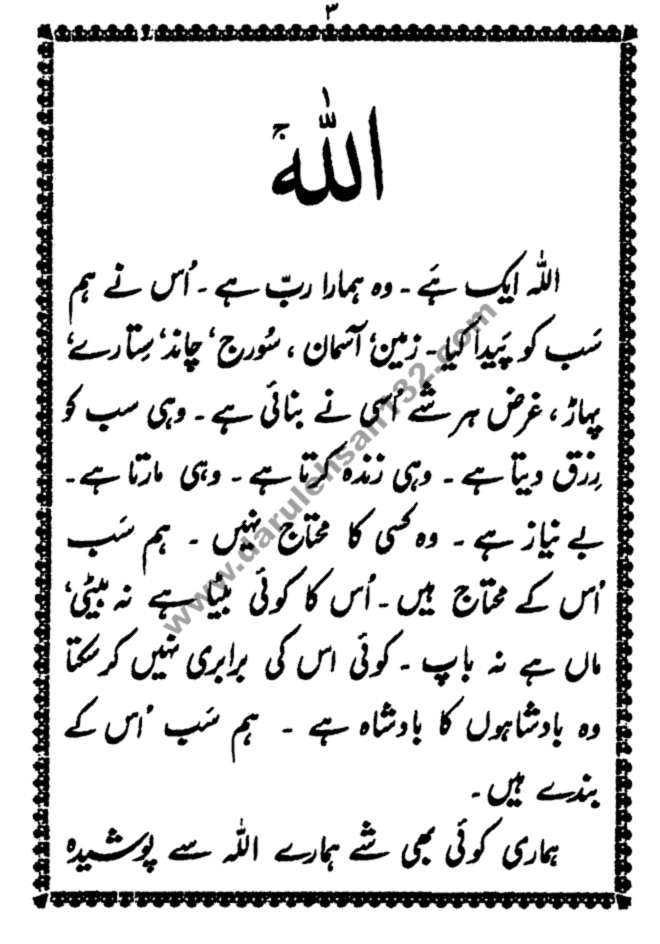 ۳
اللہ ج
اللہ ایک ہَے ۔ وہ ہمارا ربّ ہے ۔ اُس نے ہم
سَب کو پَیدا کیا ۔ زمین، آسمان ، سُورج، چاند، سِتارے،
پہاڑ ، غرض ہر شے اُسی نے بنائی ہے ۔ وہی سب کو
رِزق دیتا ہے ۔ وہی زندہ کرتا ہے ۔ وہی مارتا ہے ۔
بے نیاز ہے ۔ وہ کسی کا محتاج نہیں ۔ ہم سَب
اُس کے محتاج ہیں ۔ اُس کا کوئی بیٹا ہے نہ بیٹی،
ماں ہے نہ باپ ۔ کوئی اس کی برابری نہیں کر سکتا
وہ بادشاہوں کا بادشاہ ہے ۔ ہم سَب اُس کے
بندے ہیں ۔
ہماری کوئی بھی شے ہمارے اللہ سے پوشیدہ
www.darulehsan132.com